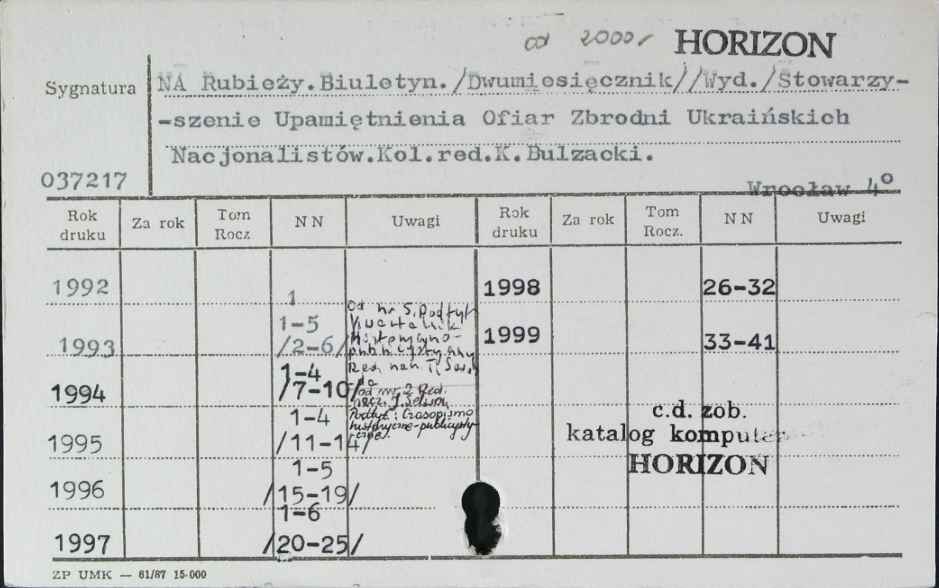 od 2000r HORIZON
Sygnatura
NA Rubieży.Biuletyn./Dwumiesięcznik//Wyd./Stowarzy-
-szenie Upamiętnienia Ofiar Zbrodni Ukraińskich
Nacjonalistów.Kol.red.K.Bulzacki.
037217
Wrocław 4°
Rok druku Za rok Tom Rocz N N Uwagi Rok druku Za rok Tom Rocz. N N Uwagi
1992 1 1998 26-32
1993 1-5 /2-6/ od nr 5. Podtyt Kwartalnik historyczno-publicystyczny Red. 1999 33-41
1994 1-4 /7-10/ od nr 2 Red.
1995 1-4 /11-14/ Podtyt: Czasopismo historyczno-publicysty
c.d. zob.
katalog komputer
HORIZON
1996 1-5 /15-19/
1997 1-6 /20-25/
ZP UMK — 61/87 15-000